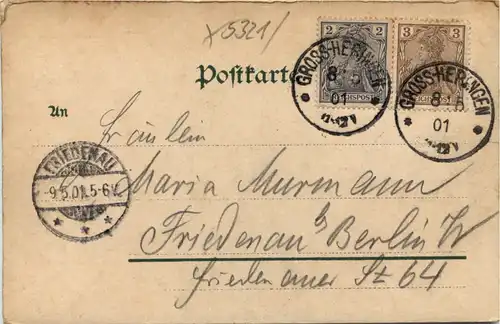 x5321/
2 3
REICHSPOST
Postkarte
GROSS-HERINGEN
8 5
01
11-12V
GROSS-HERINGEN
8 5
01
11-12V
An
Fräulein
FRIEDENAU
-9.5.01.5-6V.
Maria Murmann
Friedenau b Berlin W
Friedenauer St 64